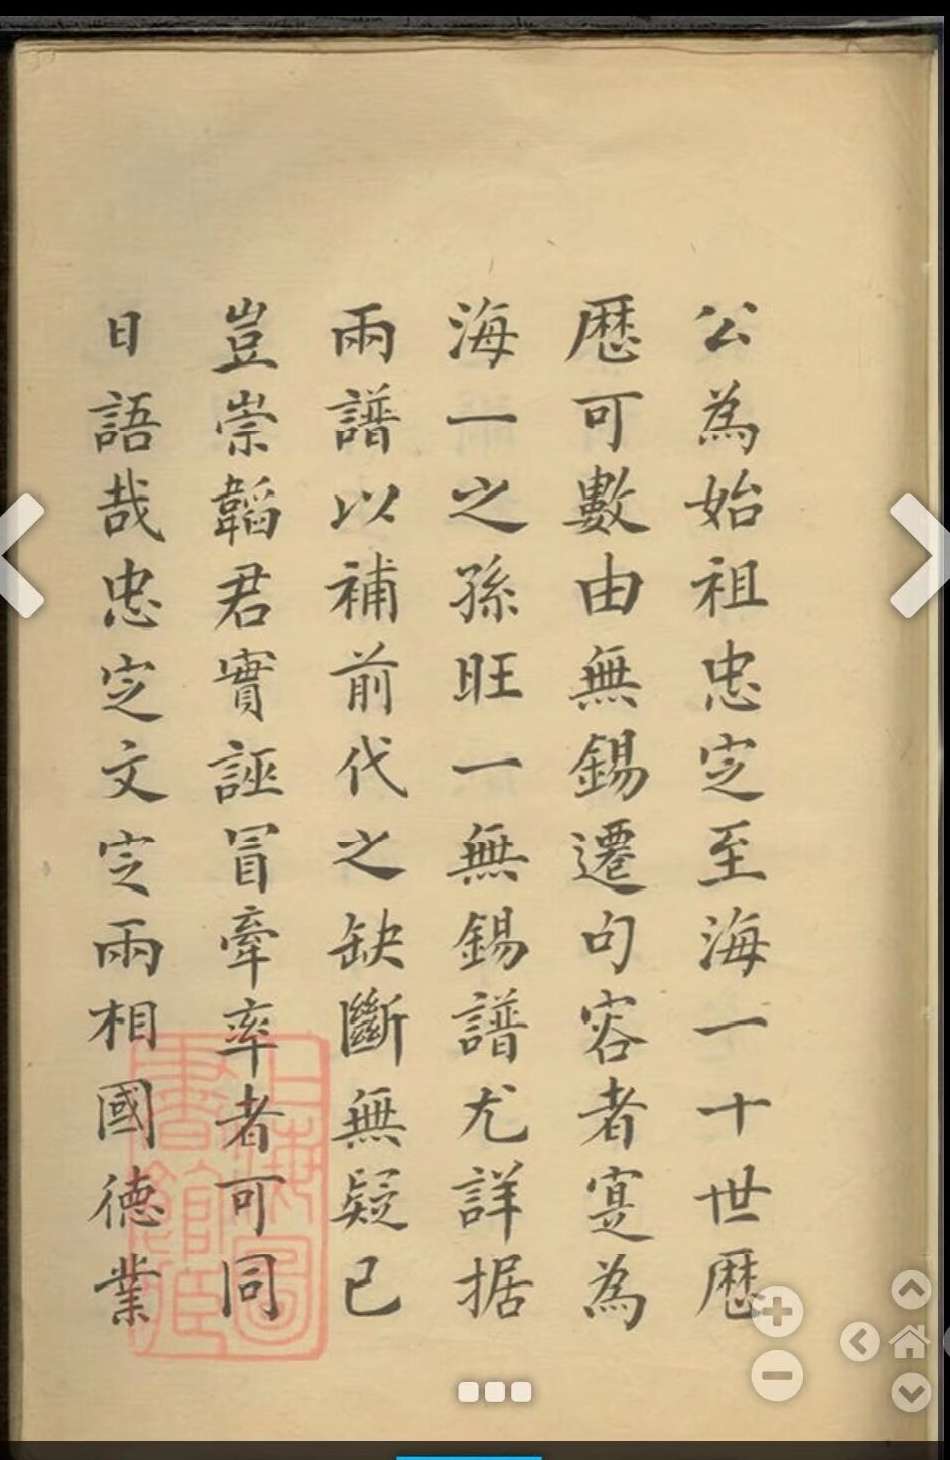 公為始祖忠定至海一十世歷
歷可數由無錫遷句容者寔為
海一之孫旺一無錫譜尤詳据
兩譜以補前代之缺斷無疑已
豈崇韜君實誣冒牽率者可同
日語哉忠定文定兩相國德業
上海圖
書館藏